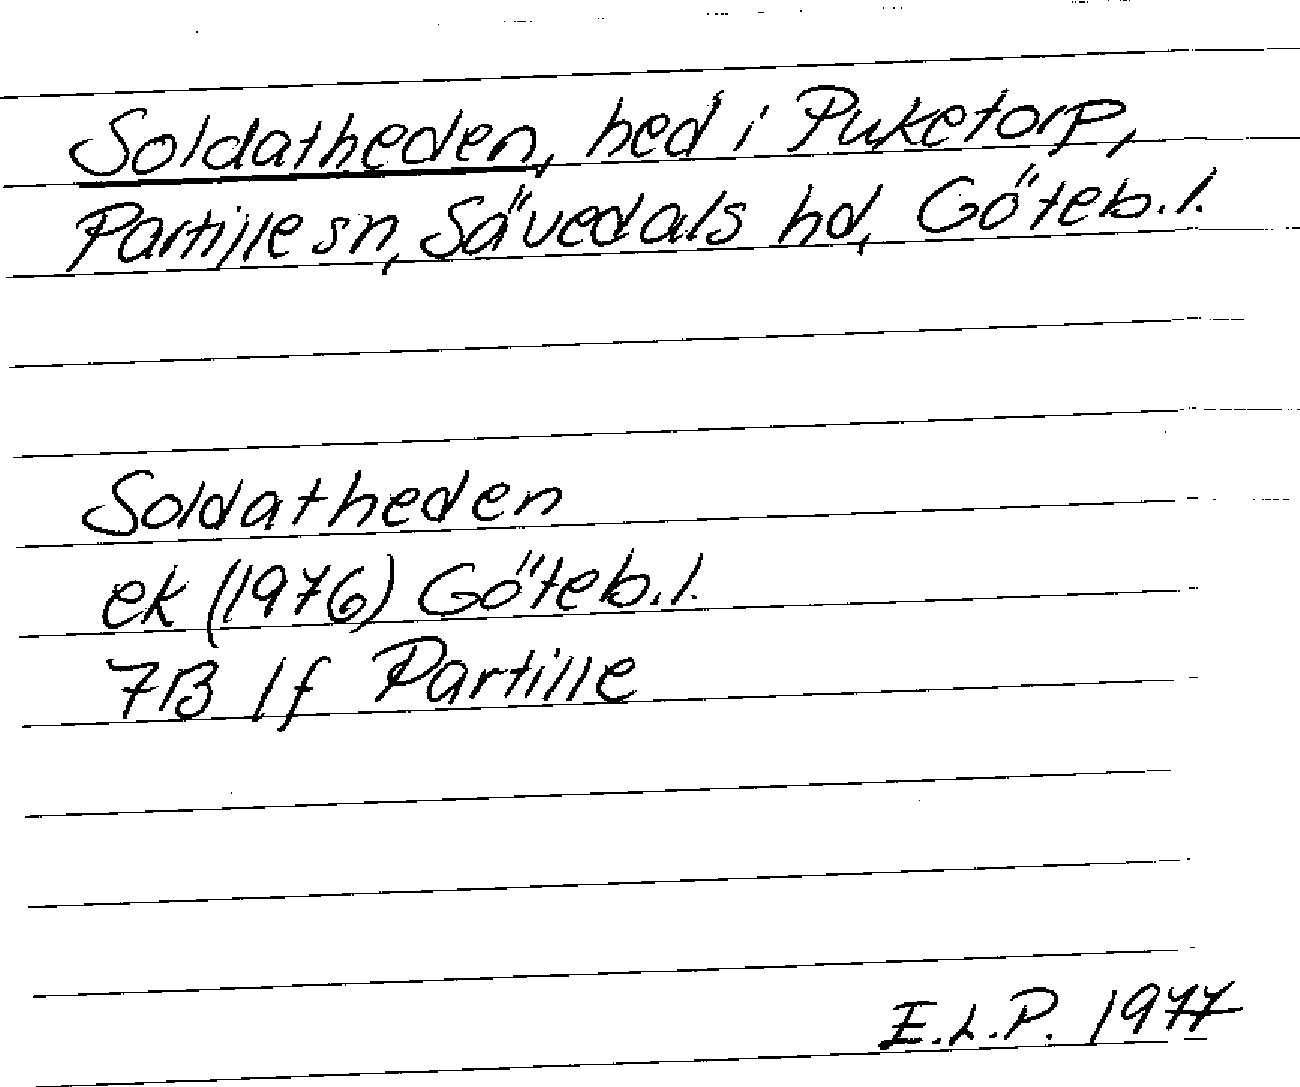 Soldatheden, hed i Puketorp,
Partille sn, Sävedals hd, Göteb.l.
Soldatheden
ek (1976) Göteb.l.
7B 1f Partille
E.L.P. 1977